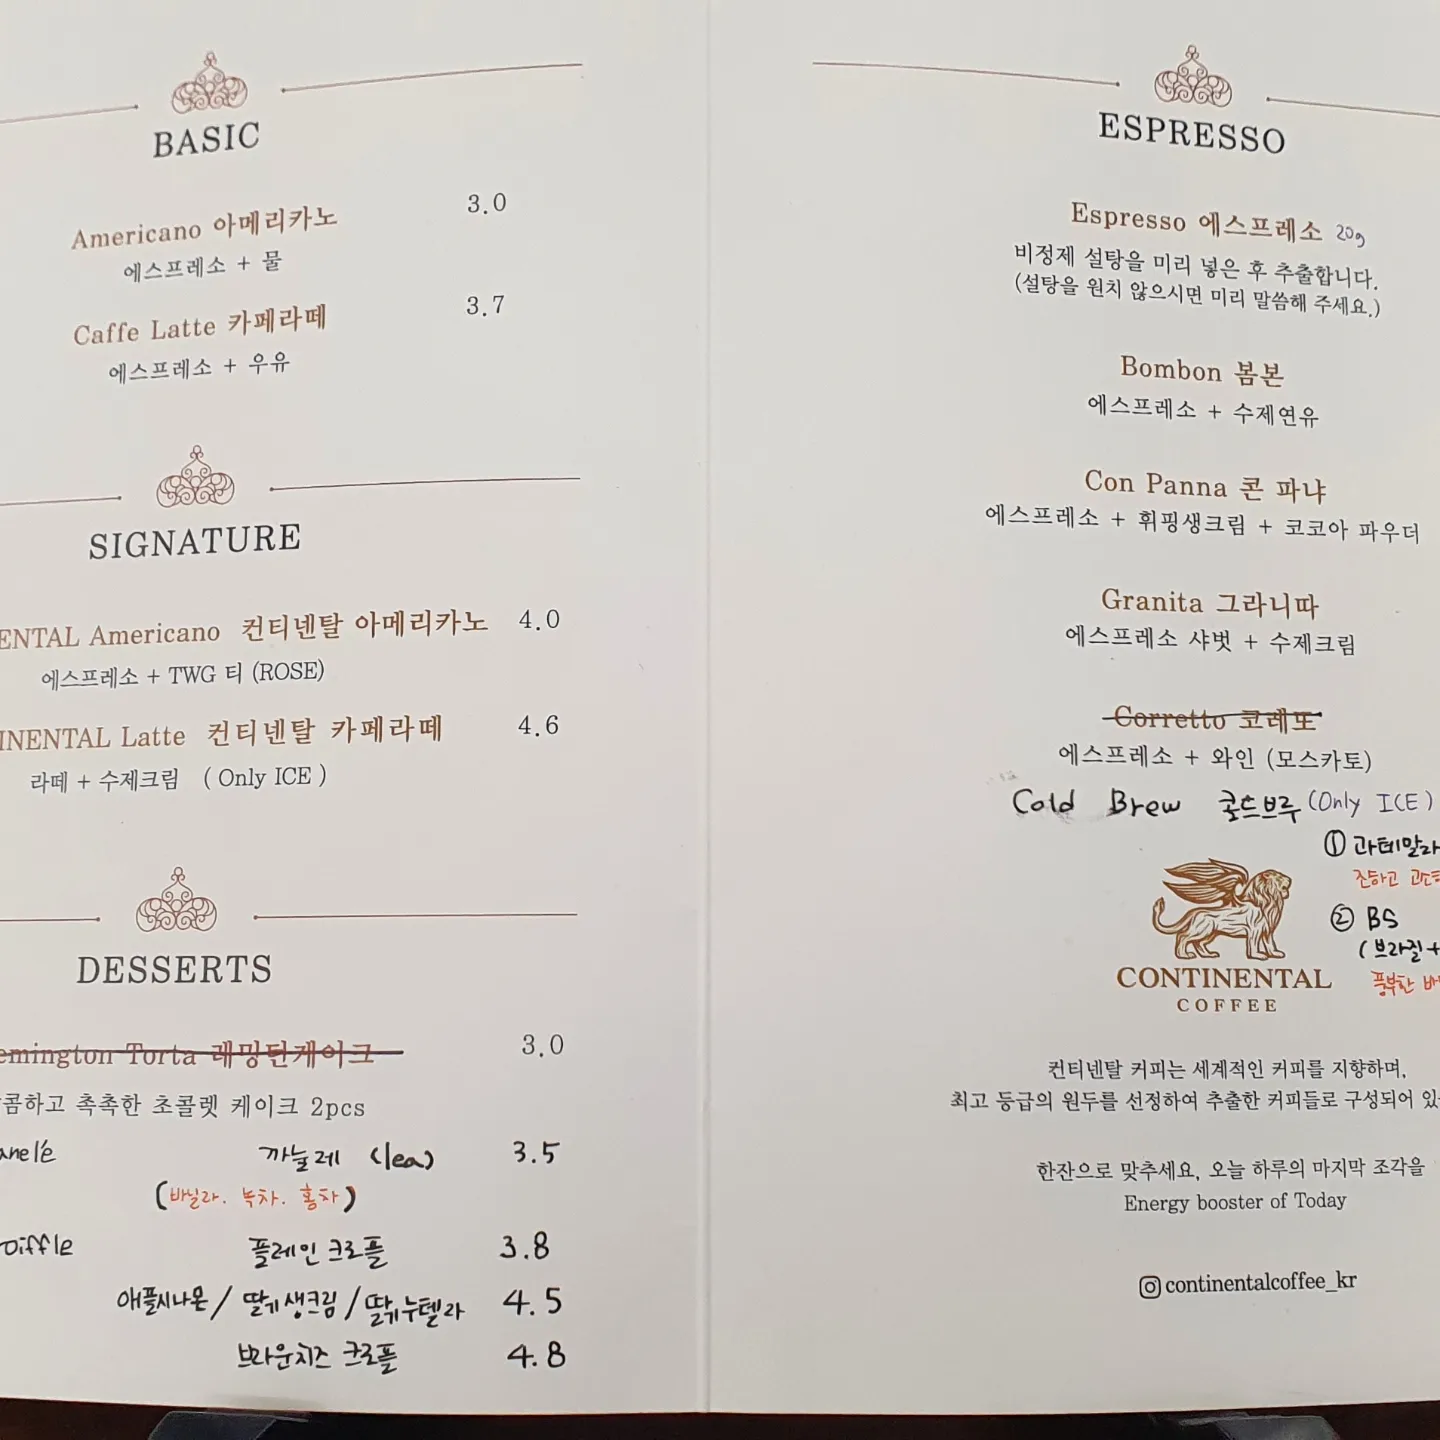 BASIC
Americano 아메리카노 3.0
에스프레소 + 물
Caffe Latte 카페라떼 3.7
에스프레소 + 우유
SIGNATURE
ENTAL Americano 컨티넨탈 아메리카노 4.0
에스프레소 + TWG 티 (ROSE)
INENTAL Latte 컨티넨탈 카페라떼 4.6
라떼 + 수제크림 ( Only ICE )
DESSERTS
emington Torta 래밍턴케이크 3.0
콤하고 촉촉한 초콜렛 케이크 2pcs
anelé 까눌레 (1ea) 3.5
(바닐라. 녹차. 홍차)
offle 플레인 크로플 3.8
애플시나몬 / 딸기생크림 / 딸기누텔라 4.5
브라운치즈 크로플 4.8
ESPRESSO
Espresso 에스프레소 20g
비정제 설탕을 미리 넣은 후 추출합니다.
(설탕을 원치 않으시면 미리 말씀해 주세요.)
Bombon 봄본
에스프레소 + 수제연유
Con Panna 콘 파냐
에스프레소 + 휘핑생크림 + 코코아 파우더
Granita 그라니따
에스프레소 샤벗 + 수제크림
Corretto 코레또
에스프레소 + 와인 (모스카토)
Cold Brew 콜드브루 (Only ICE)
① 과테말라
진하고 고소
② BS
(브라질+
풍부한 바
CONTINENTAL
COFFEE
컨티넨탈 커피는 세계적인 커피를 지향하며,
최고 등급의 원두를 선정하여 추출한 커피들로 구성되어 있
한잔으로 맞추세요, 오늘 하루의 마지막 조각을
Energy booster of Today
continentalcoffee_kr